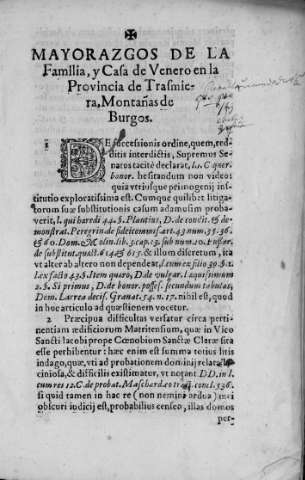 ✠
MAYORAZGOS DE LA
Familia, y Casa de Venero en la
Provincia de Trasmie-
ra, Montañas de
Burgos.
DE successionis ordine, quem, red-
ditis interdictis, Supremus Se-
natus tacitè declarat, l. 1. C. quor.
bonor. hesitandum non video:
quia verisque primogenij ins-
titutio exploratissima est. Cumque quilibet litiga-
torum suæ substitutionis casum adamusim proba-
verit, l. qui hæredi 44. §. Plautius, D. de condit. & de-
monstrat. Peregrin. de fideicommiss. art. 43. num. 35. 36.
& 60. Dom. Molin. lib. 3. cap. 13. sub num. 10.
de substitut. quæst. 614. & 615. & illum discretum, ita
vt alter ab altero non dependeat, l. cum ex filio 39. §. 1.
l. ex facto 43. §. Item quæro, D. de vulgar. l. quisimum
2. §. Si primus, D. de bonor. possess. secundum tabulas,
Dom. Larrea decis. Granat. 54. n. 17. nihil est, quod
in hoc articulo ad quæstionem vocetur.
2 Præcipua difficultas versatur circa perti-
nentiam ædificiorum Matritensium, quæ in Vico
Sancti Iacobi prope Cœnobium Sanctæ Claræ sita
esse perhibentur: hæc enim est summa totius litis
indago, quæ, vti ad probationem dominij relata,
ciniosa, & difficilis existimatur, vt notant DD. in l.
cum res 12. C. de probat. Maschard. eo tract. concl. 536.
si quid tamen in hac re (non nemini ardua) ini
obscuri iudicij est, probabilius censeo, illas domos
per-